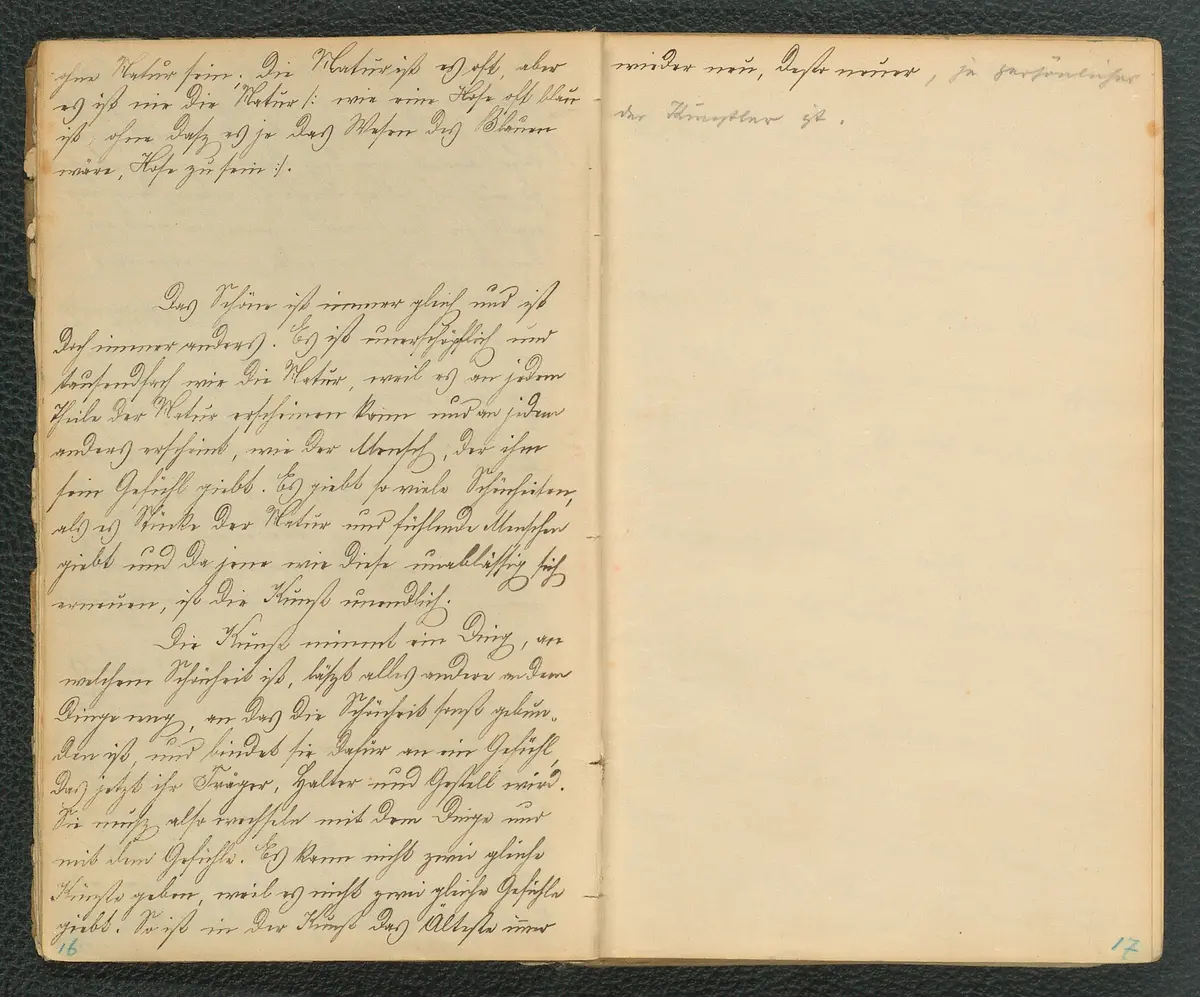 ohne Natur sein. Die Natur ist es oft, aber
es ist nie die Natur /: wie eine Hose oft blau
ist, ohne dasz es je das Wesen des Blauen
wäre, Hose zu sein :/.
Das Schöne ist immer gleich und ist
doch immer anders. Es ist unerschöpflich und
tausendfach wie die Natur, weil es an jedem
Theile der Natur erscheinen kann und an jedem
anders erscheint, wie der Mensch, der ihm
sein Gefühl giebt. Es giebt so viele Schönheiten,
als es Stücke der Natur und fühlende Menschen
giebt und da jene wie diese unablässig sich
erneuen, ist die Kunst unendlich.
Die Kunst nimmt ein Ding, an
welchem Schönheit ist, läszt alles andere an dem
Dinge weg, an das die Schönheit sonst gebun-
den ist, und bindet sie dafür an ein Gefühl,
das jetzt ihr Träger, Halter und Gestell wird.
Sie musz also wechseln mit dem Dinge und
mit dem Gefühle. Es kann nicht zwei gleiche
Künste geben, weil es nicht zwei gleiche Gefühle
giebt. So ist in der Kunst das Älteste immer
16
wieder neu, desto neuer, je persönlicher
der Künstler ist.
17